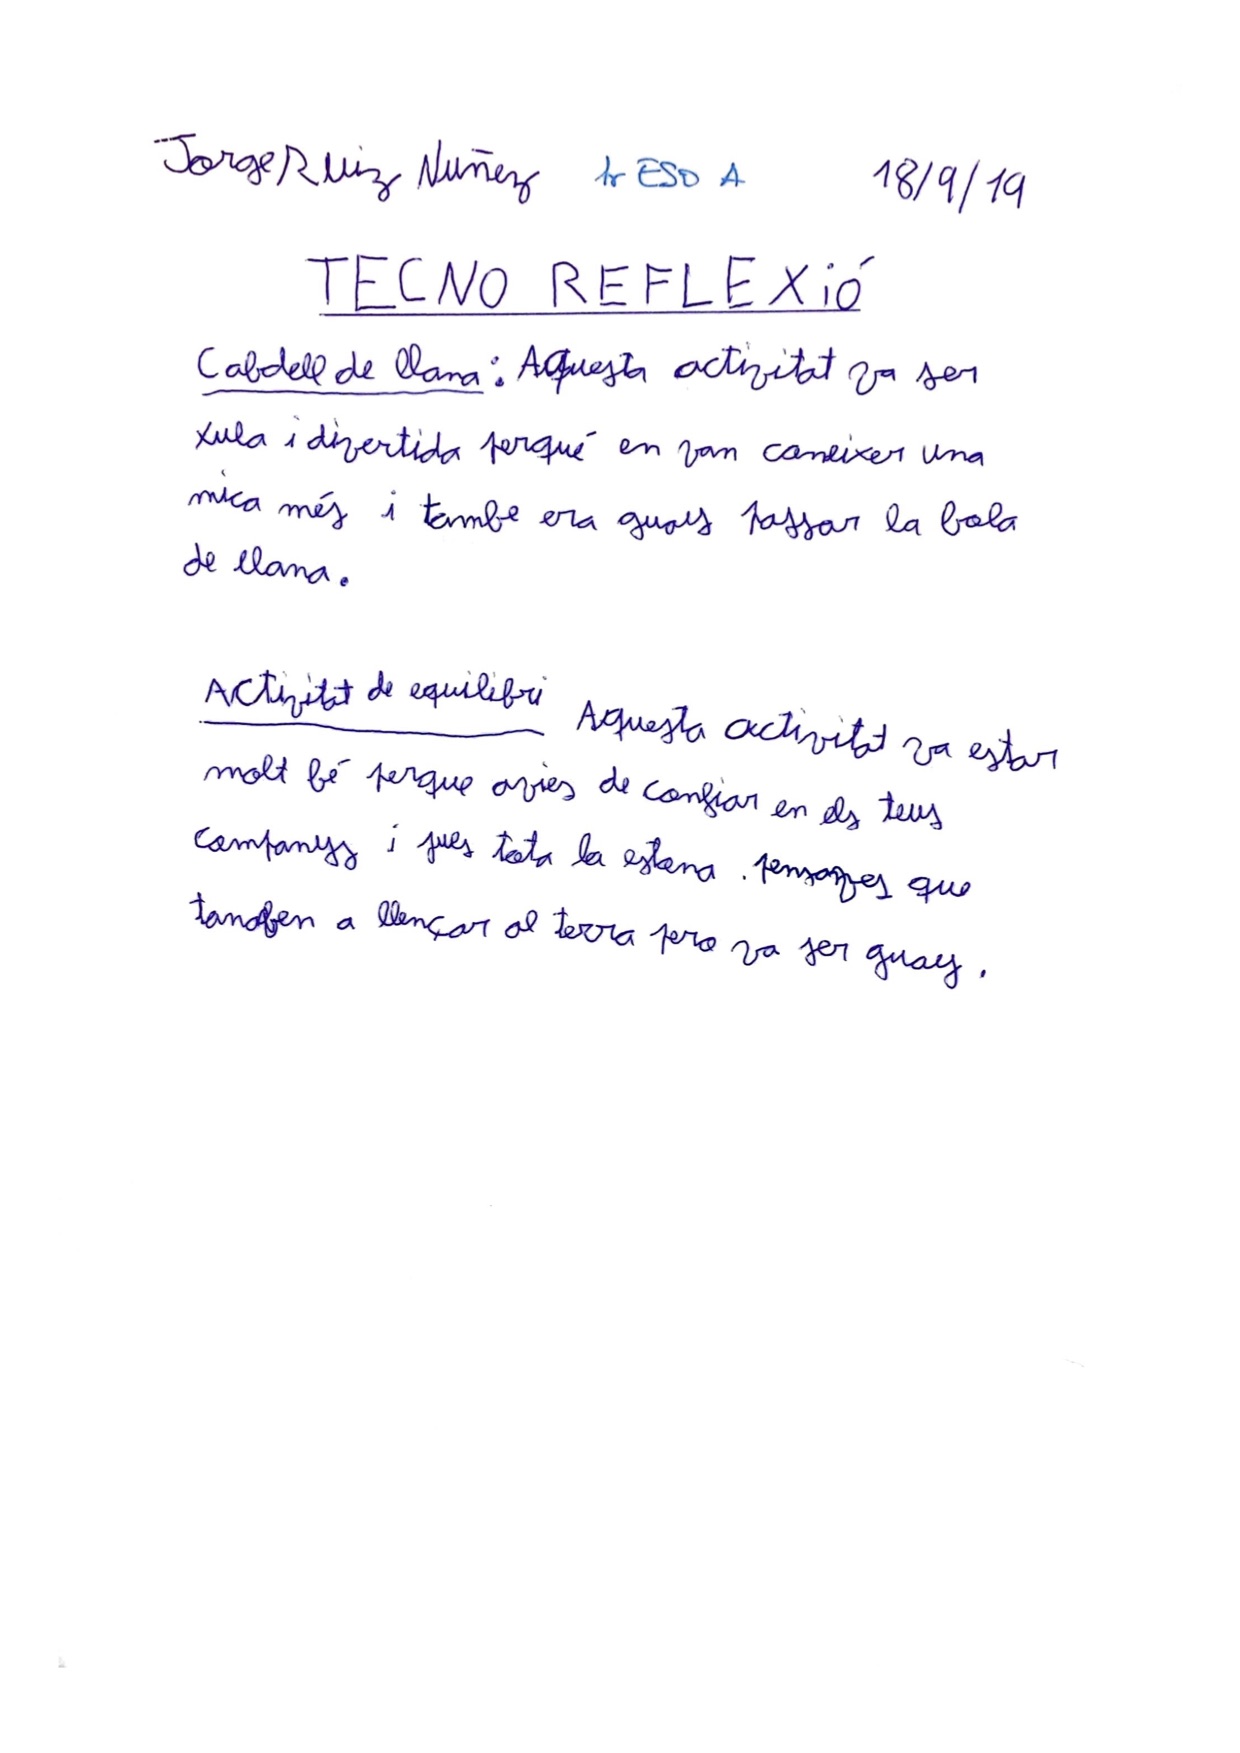 Jorge Ruiz Nuñez 1r ESO A 18/9/19
TECNO REFLEXió
Cabdell de llana: Aquesta activitat va ser
xula i divertida perqué en van coneixer una
mica més i tambe era guays passar la bola
de llana.
Activitat de equilibri Aquesta activitat va estar
molt bé perque avies de confiar en els teus
companys i pues tota la estona. pensaves que
 a llençar al terra pero va ser guay.